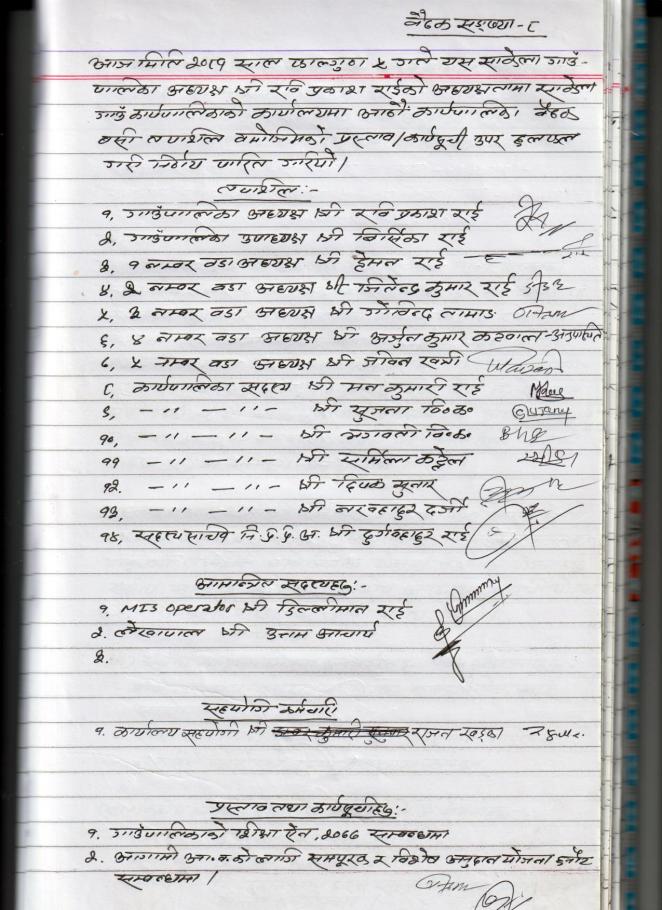 बैठक सङ्ख्या-८
आज मिति २०७९ साल फाल्गुण ५ गते यस साकेला गाउँ-
पालिका अध्यक्ष श्री रवि प्रकाश राईको अध्यक्षतामा साकेला
गाउँ कार्यपालिकाको कार्यालयमा आठौं कार्यपालिका बैठक
बसी तपशिल बमोजिमको प्रस्ताव/कार्यसूची उपर छलफल
गरी निर्णय पारित गरियो।
तपशिल:-
१, गाउँपालिका अध्यक्ष श्री रवि प्रकाश राई
२, गाउँपालिका उपाध्यक्ष श्री विर्सिका राई
३, १ नम्बर वडा अध्यक्ष श्री हेमन राई
४, २ नम्बर वडा अध्यक्ष श्री जितेन्द्र कुमार राई
५, ३ नम्बर वडा अध्यक्ष श्री गोविन्द तामाङ
६, ४ नम्बर वडा अध्यक्ष श्री अर्जुन कुमार कटवाल-अनुपस्थित
७, ५ नम्बर वडा अध्यक्ष श्री जीवन खत्री
८, कार्यपालिका सदस्य श्री मन कुमारी राई
९, -〃 -〃- श्री सुजता वि॰क॰
१०, -〃 -〃- श्री भगवती वि॰क॰
११ -〃 -〃- श्री सर्मिला कट्टेल
१२. -〃 -〃- श्री दिपक सुनार
१३, -〃 -〃- श्री नरबहादुर दर्जी
१४, सदस्य सचिव नि.प्र.प्र.अ. श्री दुर्गबहादुर राई
आमन्त्रित सदस्यहरु:-
१. MIS operator श्री डिल्लीमान राई
२. लेखापाल श्री उत्तम आचार्य
३.
सहयोगि कर्मचारी
१. कार्यालय सहयोगी श्री राजन खड्का
प्रस्ताव तथा कार्यसूचीहरु:-
१. गाउँपालिकाको शिक्षा ऐन, २०७७ सम्बन्धमा
२. आगामी आ.व.को लागि समपूरक र विशेष अनुदान योजना छनौट
सम्बन्धमा।